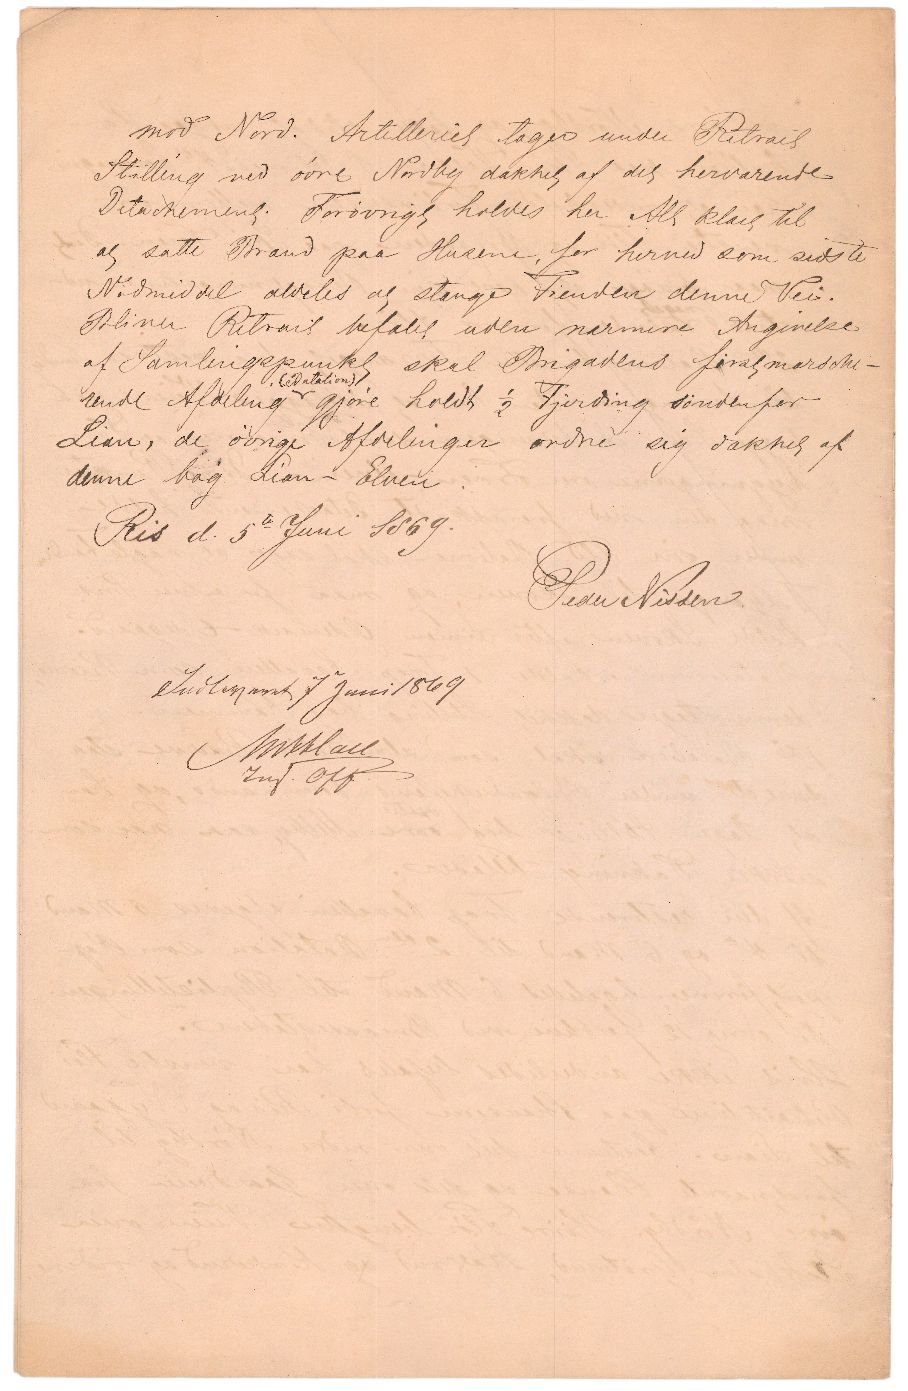 mod Nord. Artilleriet tager under Retrait
Stilling ved övre Nordby dækket af det herværende
Detachement. Forövrigt holdes her Alt klart til
at sætte Brand paa Husene, for herved som sidste
Nødmiddel aldeles at stænge Fienden denne Vei.
Bliver Retrait befalet uden nærmere Angivelse
af Samlingspunkt, skal Brigadens førstmarsche-
rende Afdeling (Bataillon) gjøre holdt ½ Fjerding søndenfor
Lian, de övrige Afdelinger ordne sig dækket af
denne bag Lian-Elven.
Ris d. 5te Juni 1869.
Peder Nissen
Indleveret 7 Juni 1869
Insp. Off.